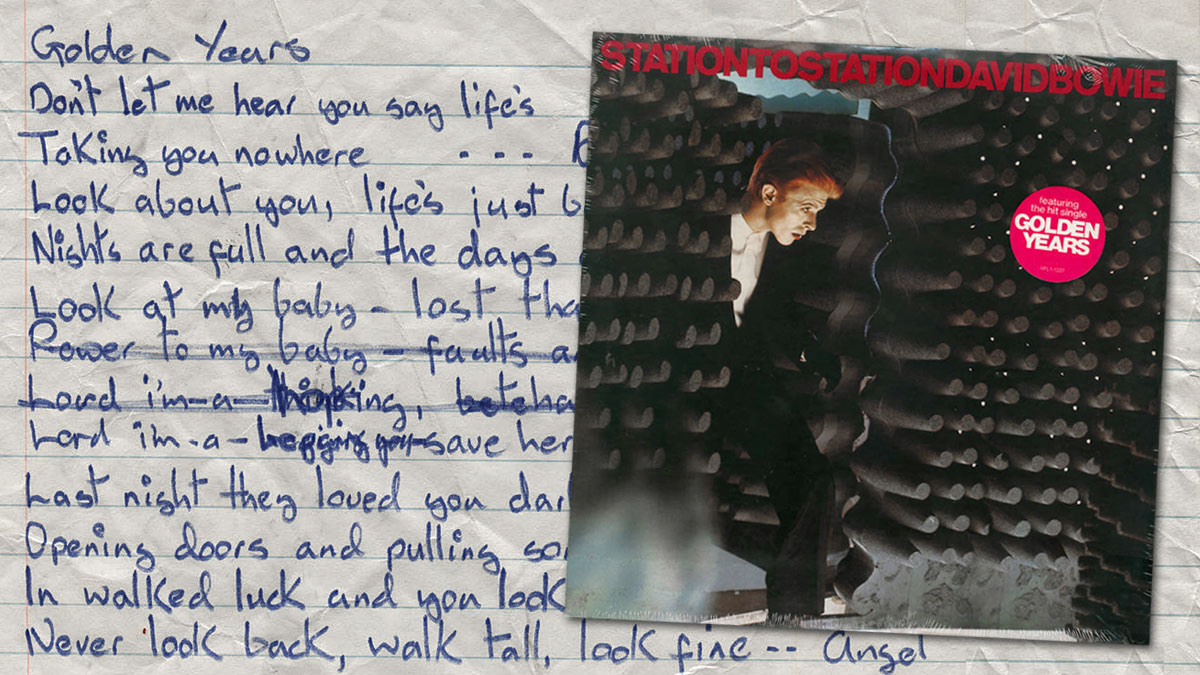 Golden Years
Don't let me hear you say life's
Taking you nowhere - - -
Look about you, life's just b
Nights are full and the days
Look at my baby - lost tha
Power to my baby - faults a
Lord i'm-a- thinking, betcha
Lord i'm-a- begging you save her
Last night they loved you dar
Opening doors and pulling so
In walked luck and you look
Never look back, walk tall, look fine -- Angel
STATIONTOSTATIONDAVIDBOWIE
featuring
the hit single
GOLDEN
YEARS